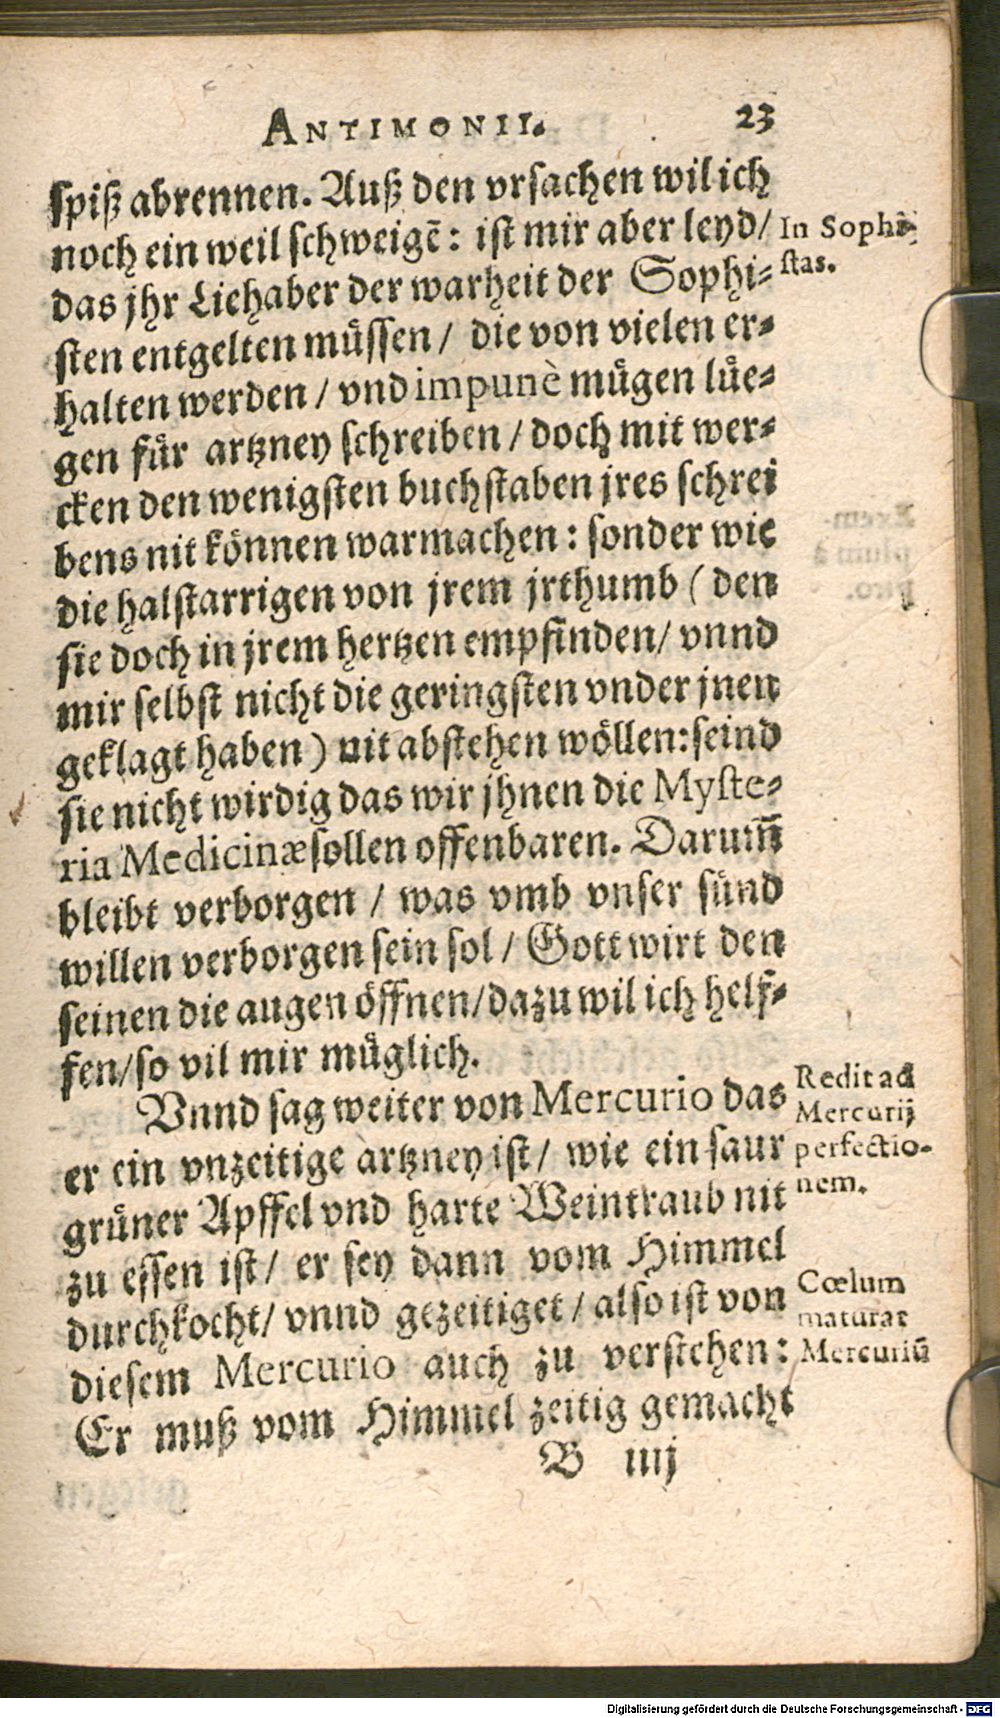 ANTIMONII. 23
spiß abrennen. Auß den vrsachen wil ich
noch ein weil schweigē: ist mir aber leyd/
In Sophi-
das jhr Liehaber der warheit der Sophi-
stas.
sten entgelten müssen/ die von vielen er-
halten werden/ vnd impunè mügen lüe-
gen für artzney schreiben/ doch mit wer-
cken den wenigsten buchstaben jres schrei
bens nit können warmachen: sonder wie
die halstarrigen von jrem jrthumb (den
sie doch in jrem hertzen empfinden/ vnnd
mir selbst nicht die geringsten vnder jnen
geklagt haben) nit abstehen wöllen: seind
sie nicht wirdig das wir jhnen die Myste-
ria Medicinæ sollen offenbaren. Darum̄
bleibt verborgen/ was vmb vnser sünd
willen verborgen sein sol/ Gott wirt den
seinen die augen öffnen/ dazu wil ich helf-
fen/ so vil mir müglich.
Vnnd sag weiter von Mercurio das
Redit ad
Mercurij
er ein vnzeitige artzney ist/ wie ein saur
perfectio-
grüner Apffel vnd harte Weintraub nit
nem.
zu essen ist/ er sey dann vom Himmel
durchkocht/ vnnd gezeitiget/ also ist von
Cœlum
maturat
diesem Mercurio auch zu verstehen:
Mercuriū
Er muß vom Himmel zeitig gemacht
B iiij
Digitalisierung gefördert durch die Deutsche Forschungsgemeinschaft - DFG